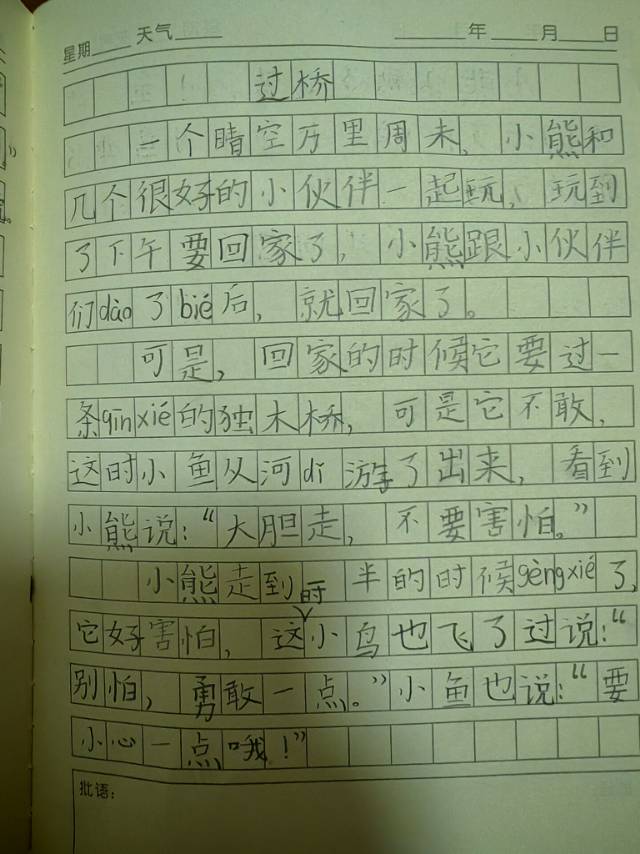 星期 天气 年 月 日
过桥
一个晴空万里周末，小熊和
几个很好的小伙伴一起玩，玩到
了下午要回家了，小熊跟小伙伴
们dào了bié后，就回家了。
可是，回家的时候它要过一
条qīnxié的独木桥，可是它不敢，
这时小鱼从河dǐ游了出来，看到
小熊说：“大胆走，不要害怕。”
小熊走到半的时候gèngxié了，
它好害怕，这时小鸟也飞了过说：“
别怕，勇敢一点。”小鱼也说：“要
小心一点哦！”
批语：